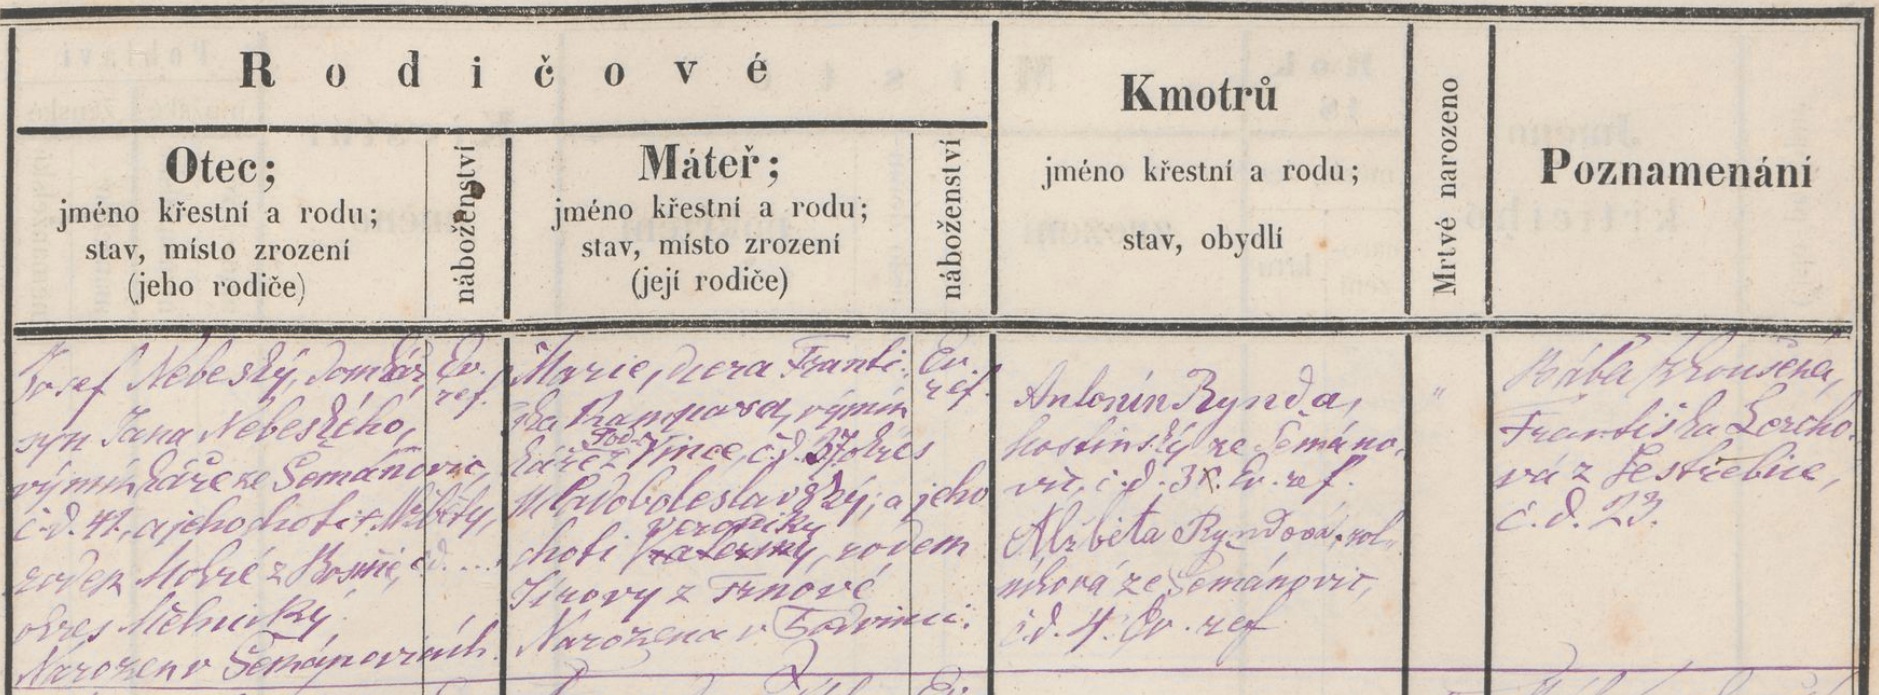 Rodičové
Otec;
jméno křestní a rodu;
stav, místo zrození
(jeho rodiče)
náboženství
Máteř;
jméno křestní a rodu;
stav, místo zrození
(její rodiče)
náboženství
Kmotrů
jméno křestní a rodu;
stav, obydlí
Mrtvé narozeno
Poznamenání
Josef Nebeský, domkář,
syn Jana Nebeského,
výminkáře ze Šemanovic,
č.d. 41, a jeho choti Alžběty,
rodem Mokré z Bosně, č.d. ...
okres Mělnický
Narozen v Šemánovicích.
Ev.
ref.
Marie, dcera Franti-
ška výmin
káře z Vince, č.d. 37 okres
Mladoboleslavský; a jeho
choti Veroniky, rodem
Jírovy z Trnové
Narozena v Podvinci.
Ev.
ref.
Antonín Rynda,
hostinský ze Šemáno-
vic, č.d. Ev. ref.
Alžběta Ryndová, rol-
níková ze Šemánovic,
č.d. 4. Ev. ref
"
Bába zkoušená,
Františka Lercho-
vá z Jestřebice,
č.d. 23.